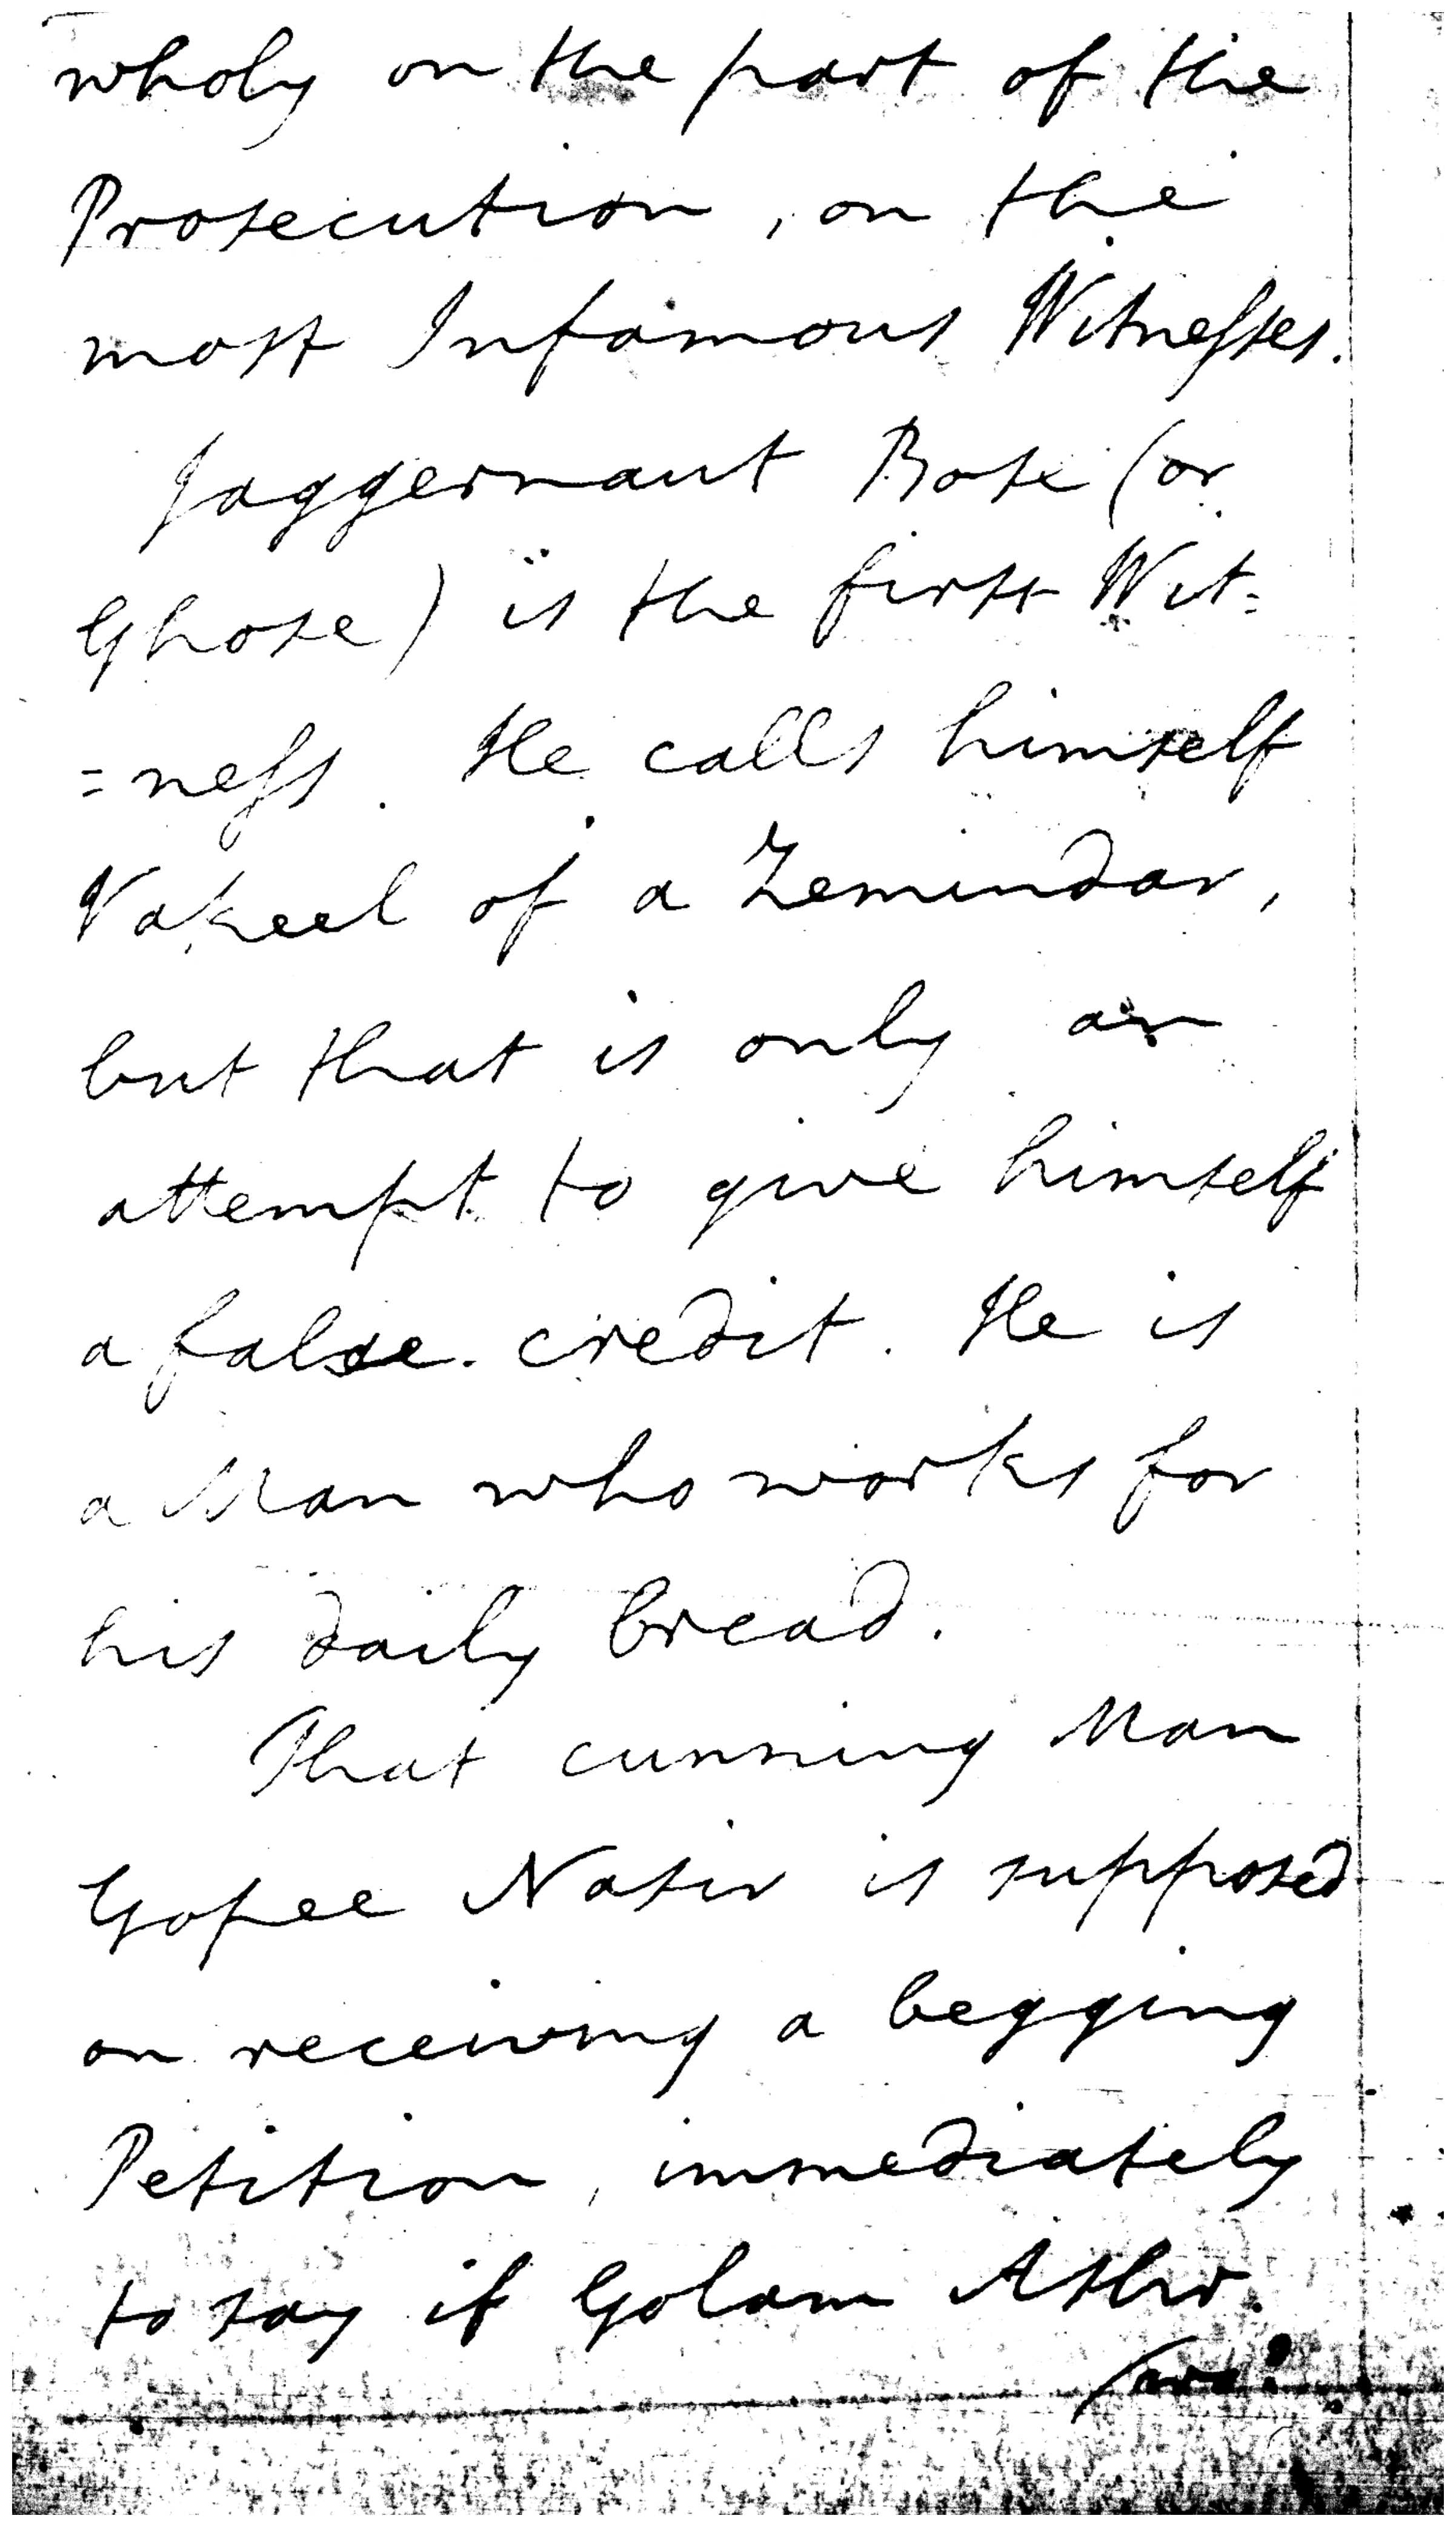 wholy on the part of the
Prosecution, on the
most Infamous Witnesses.
Jaggernaut Bose (or
Ghose) is the first Wit=
=ness. He calls himself
Vakeel of a Zemindar,
but that is only an
attempt to give himself
a false credit. He is
a Man who works for
his daily bread.
That cunning Man
Gopee Nasir is supposed
on receiving a begging
Petition, immediately
to say if Golam